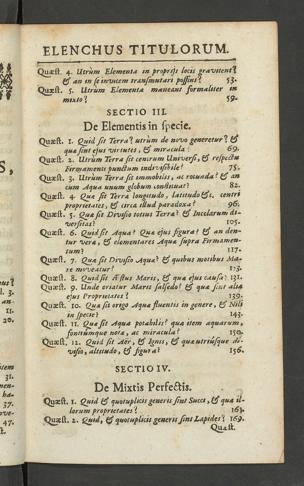 ELENCHUS TITULORUM.
Quæst. 4. Utrum Elementa in propriis locis gravitent?
& an in se invicem transmutari possint? 53.
Quæst. 5. Utrum Elementa maneant formaliter in
mixto? 59.
SECTIO III.
De Elementis in specie.
Quæst. 1. Quid sit Terra? utrum de novo generetur? &
quæ sint ejus virtutes, & miracula? 69.
Quæst. 2. Utrum Terra sit centrum Universi, & respectu
Firmamenti punctum indivisibile? 75.
Quæst. 3. Utrum Terra sit immobilis, ac rotunda? & an
cum Aqua unum globum constituat? 82.
Quæst. 4. Quæ sit Terræ longitudo, latitudo &c. centri
proprietates, & circa illud paradoxa? 96.
Quæst. 5. Quæ sit Divisio totius Terræ? & Incolarum di-
versitas? 105.
Quæst. 6. Quid sit Aqua? Quæ ejus figura? & an den-
tur vera, & elementares Aquæ supra Firmamen-
tum? 117.
Quæst. 7. Quæ sit Divisio Aquæ? & quibus motibus Ma-
re moveatur? 123.
Quæst. 8. Quid sit Æstus Maris, & quæ ejus causa? 131.
Quæst. 9. Unde oriatur Maris salsedo? & quæ sint aliæ
ejus Proprietates? 139.
Quæst. 10. Quæ sit origo Aquæ fluentis in genere, & Nili
in specie? 143.
Quæst. 11. Quæ sit Aqua potabilis? quæ item aquarum,
fontiumque nota, ac miracula? 150.
Quæst. 12. Quid sit Aër, & Ignis, & quæ utriusque di-
visio, altitudo, & figura? 156.
SECTIO IV.
De Mixtis Perfectis.
Quæst. 1. Quid & quotuplicis generis sint Succi, & quæ il-
lorum proprietates? 163.
Quæst. 2. Quid, & quotuplicis generis sint Lapides? 169.
Quæst.